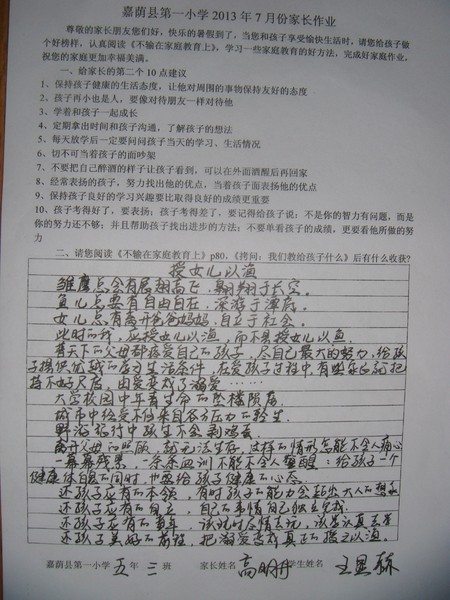 嘉荫县第一小学 2013 年 7 月份家长作业
尊敬的家长朋友您们好，快乐的暑假到了，当您和孩子享受愉快生活时，请您给孩子做
个好榜样，认真阅读《不输在家庭教育上》，学习一些家庭教育的好方法，完成好家庭作业，
祝您的家庭更加幸福美满。
一、给家长的第二个 10 点建议
1、保持孩子健康的生活态度，让他对周围的事物保持友好的态度
2、孩子再小也是人，要像对待朋友一样对待他
3、学着和孩子一起成长
4、定期拿出时间和孩子沟通，了解孩子的想法
5、每天放学后一定要问问孩子当天的学习、生活情况
6、切不可当着孩子的面吵架
7、不要把自己醉酒的样子让孩子看到，可以在外面酒醒后再回家
8、经常表扬的孩子，努力找出他的优点，当着孩子面表扬他的优点
9、保持孩子良好的学习兴趣要比取得良好的成绩更重要
10、孩子考得好了，要表扬；孩子考得差了，要记得给孩子说：不是你的智力有问题，而是
你的努力还不够；并且帮助孩子找出进步的方法；不要单看孩子的成绩，更要看他所做的努
力
二、请您阅读《不输在家庭教育上》p80，《拷问：我们教给孩子什么》后有什么收获？
授女儿以渔
雏鹰总会有展翅高飞，翱翔于长空。
鱼儿总要有自由自在，深游于潭底。
女儿总有离开爸爸妈妈，自立于社会。
此时的我，应授女儿以渔，而不是授女儿以鱼。
普天下的父母都疼爱自己的孩子，尽自己最大的努力，给孩
子提供优越的学习生活条件，在爱孩子过程中，有些年的就把
持不好尺度，由爱变成了溺爱……
大学校园中年青生命的坠楼陨落
城市中经受不住来自各方压力的轻生
野游旅行中孩生不会剥鸡蛋
离开父母的照顾，就无法生存，这样的情形怎能不令人痛心
一幕幕残景，一条条血训不能不令人警醒：给孩子一个
健康体魄的同时，也要给孩子健康的心态
还孩子应有的本领，有时孩子的能力会超出大人的想象
还孩子应有的自立，自己的事情自己独立完成
还孩子应有的童年，该玩时尽情去玩，该学认真去学
还孩子美好的前程，把溺爱变成真正的授之以渔。
嘉荫县第一小学 五 年 三 班 家长姓名 高明 学生姓名 王